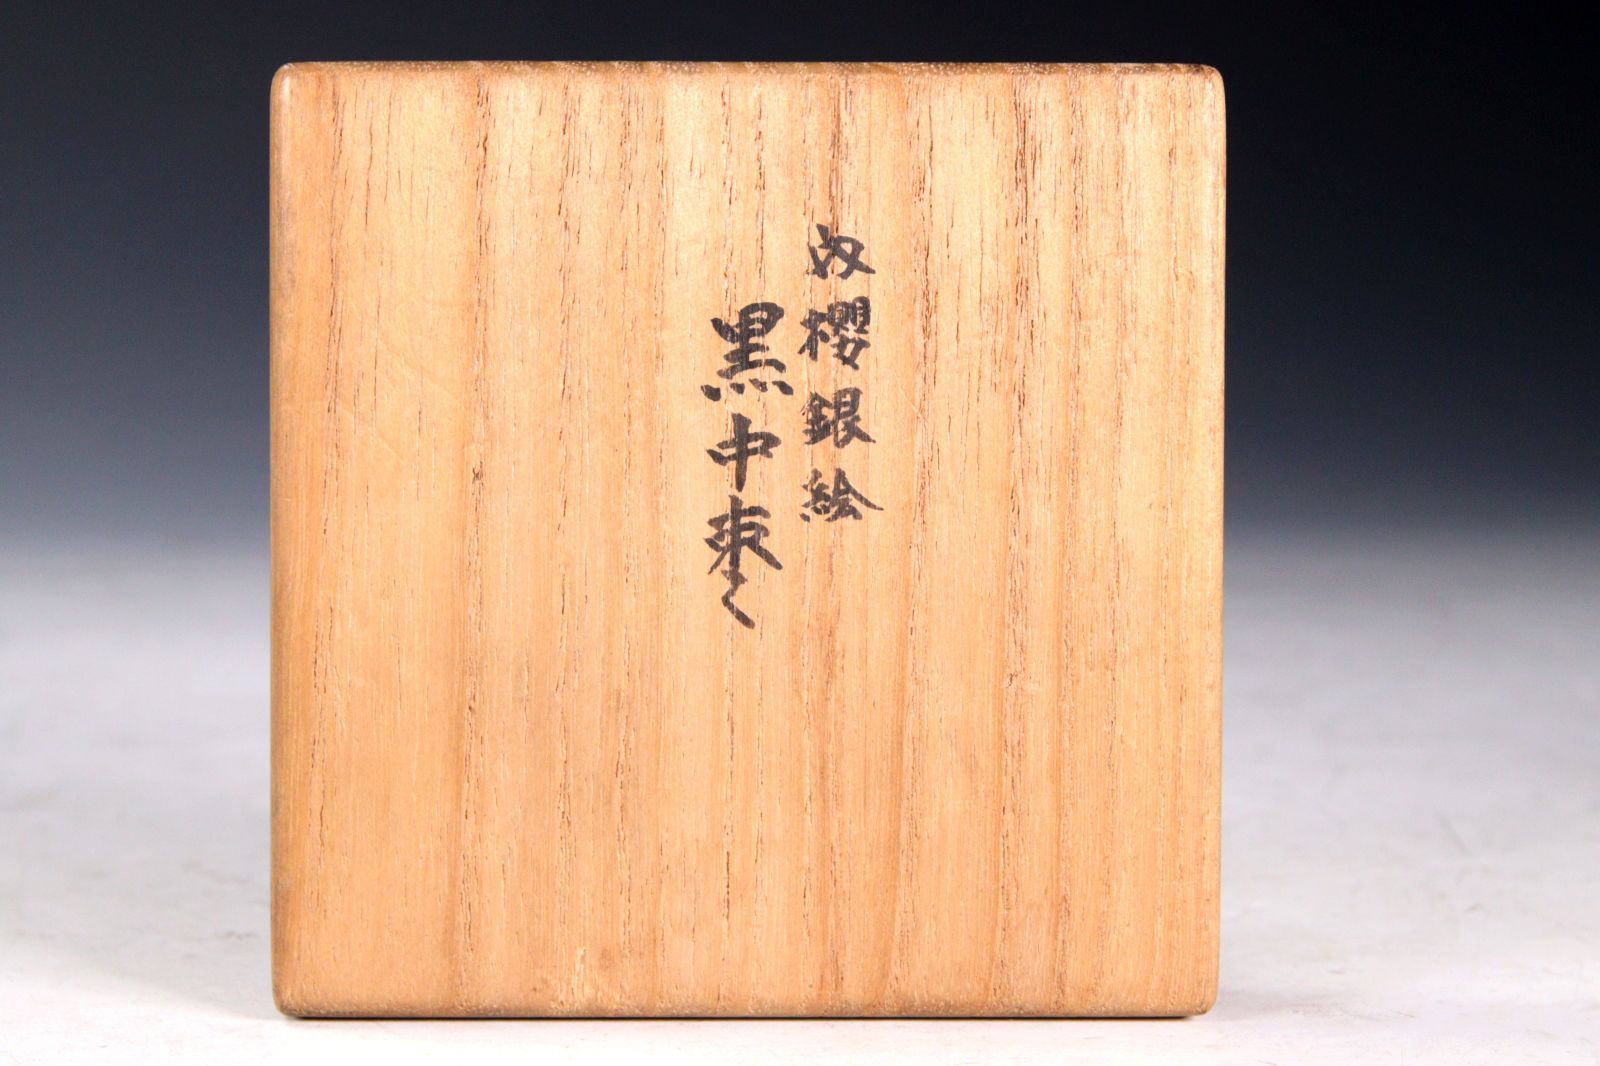 内櫻銀絵
黒中棗